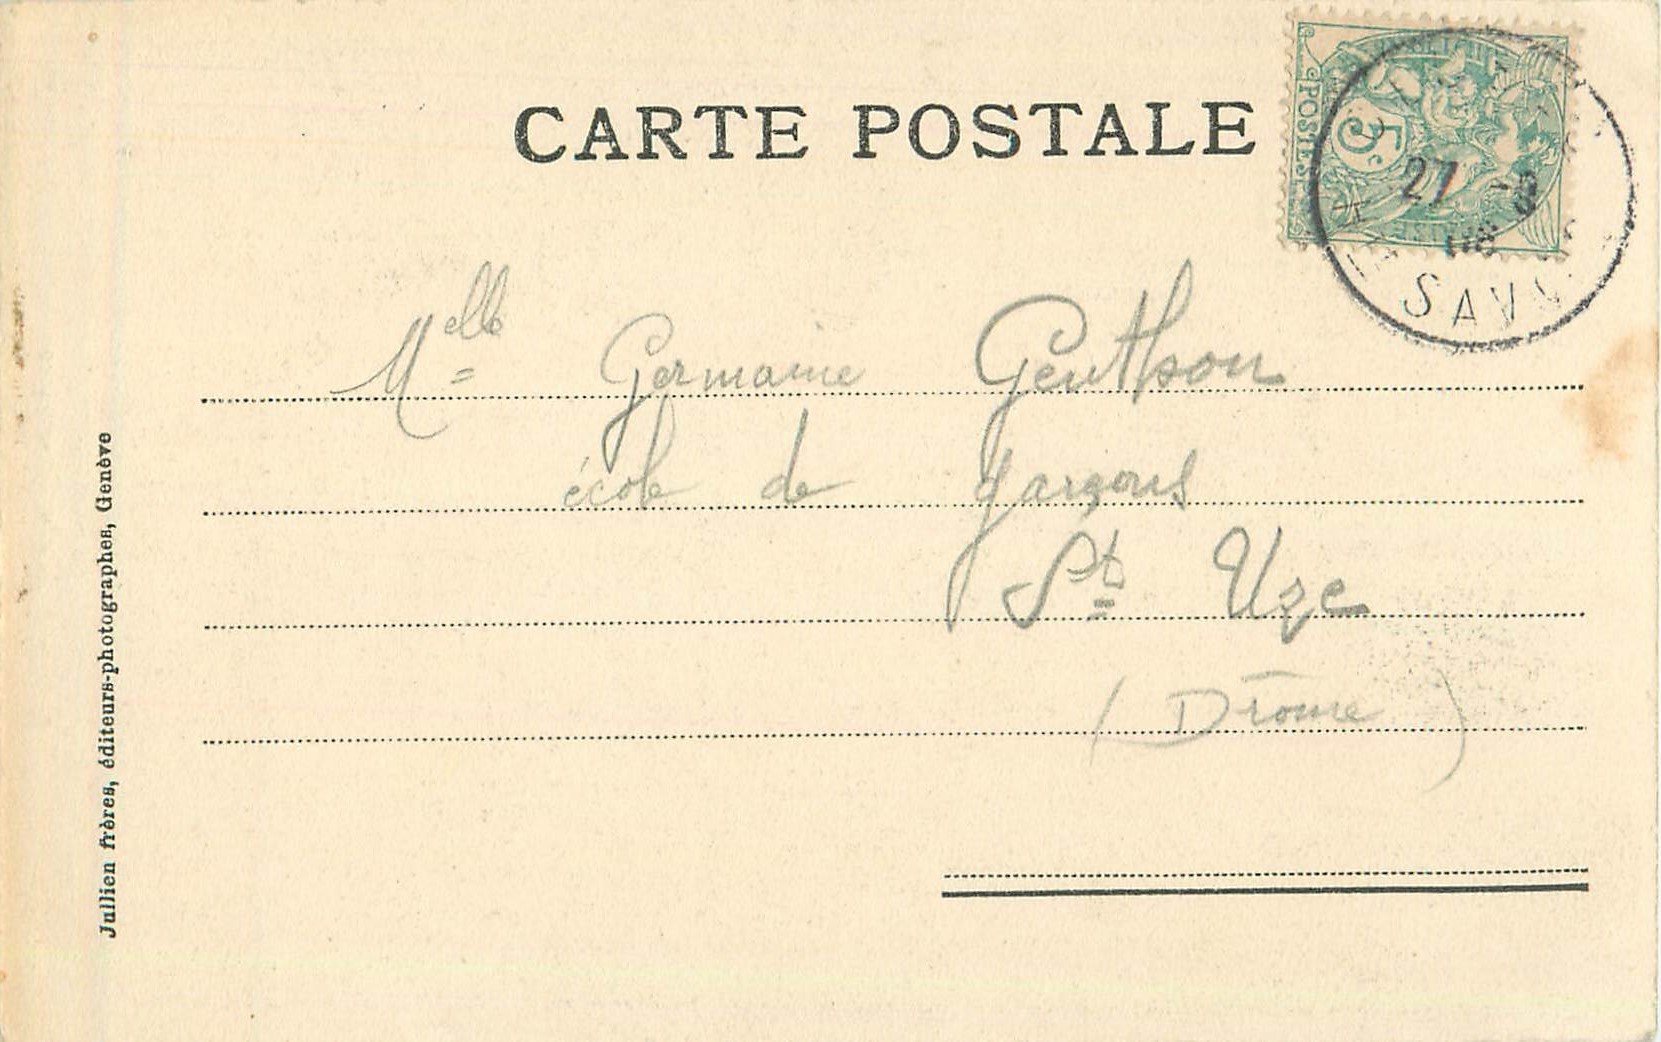 CARTE POSTALE
POSTES
5c
27
08
SAVO
Melle Germaine Genthon
école de garçons
St Uze
(Drôme)
Jullien frères, éditeurs-photographes, Genève